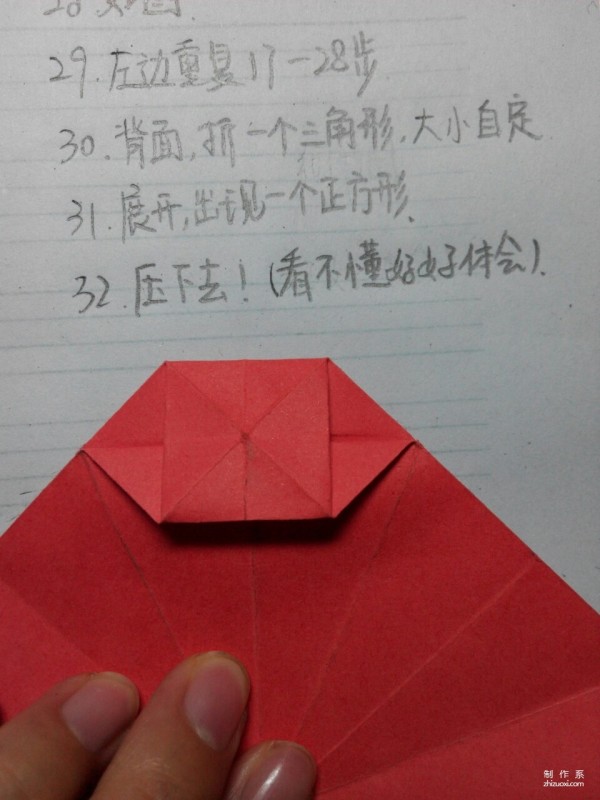 28.如图.
29.左边重复17－28步
30.背面,折一个三角形,大小自定
31.展开,出现一个正方形.
32.压下去！(看不懂好好体会).
制作系
zhizuoxi.com